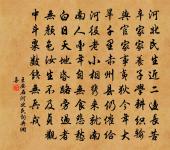 河北民生近二邊長苦
辛家家養子學耕織輸
與官家事夷狄今年大
旱千里赤州縣仍催給
河役老小相攜來就南
南人豐年自無食悲愁
白日天地昏路旁過者
無顏色汝生不及貞觀
中斗粟數錢無兵戎
王安石河北民